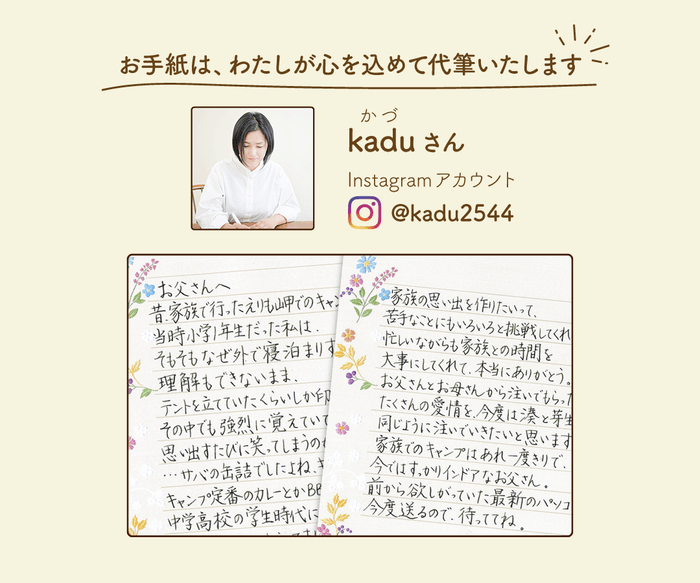 お手紙は、わたしが心を込めて代筆いたします
かづ
kadu さん
Instagramアカウント
@kadu2544
お父さんへ
昔、家族で行ったえりも岬でのキャン
当時小学1年生だった私は、
そもそもなぜ外で寝泊まりす
理解もできないまま、
テントを立てていたくらいしか印
その中でも強烈に覚えていて
思い出すたびに笑ってしまうのが
…サバの缶詰でしたよね。
キャンプ定番のカレーとかBB
中学高校の学生時代に
家族の思い出を作りたいって、
苦手なことにもいろいろと挑戦してくれ
忙しいながらも家族との時間を
大事にしてくれて、本当にありがとう。
お父さんとお母さんから注いでもらった
たくさんの愛情を、今度は湊と芽生
同じように注いでいきたいと思います
家族でのキャンプはあれ一度きりで、
今ではすっかりインドアなお父さん。
前から欲しがっていた最新のパソコ
今度送るので、待っててね。